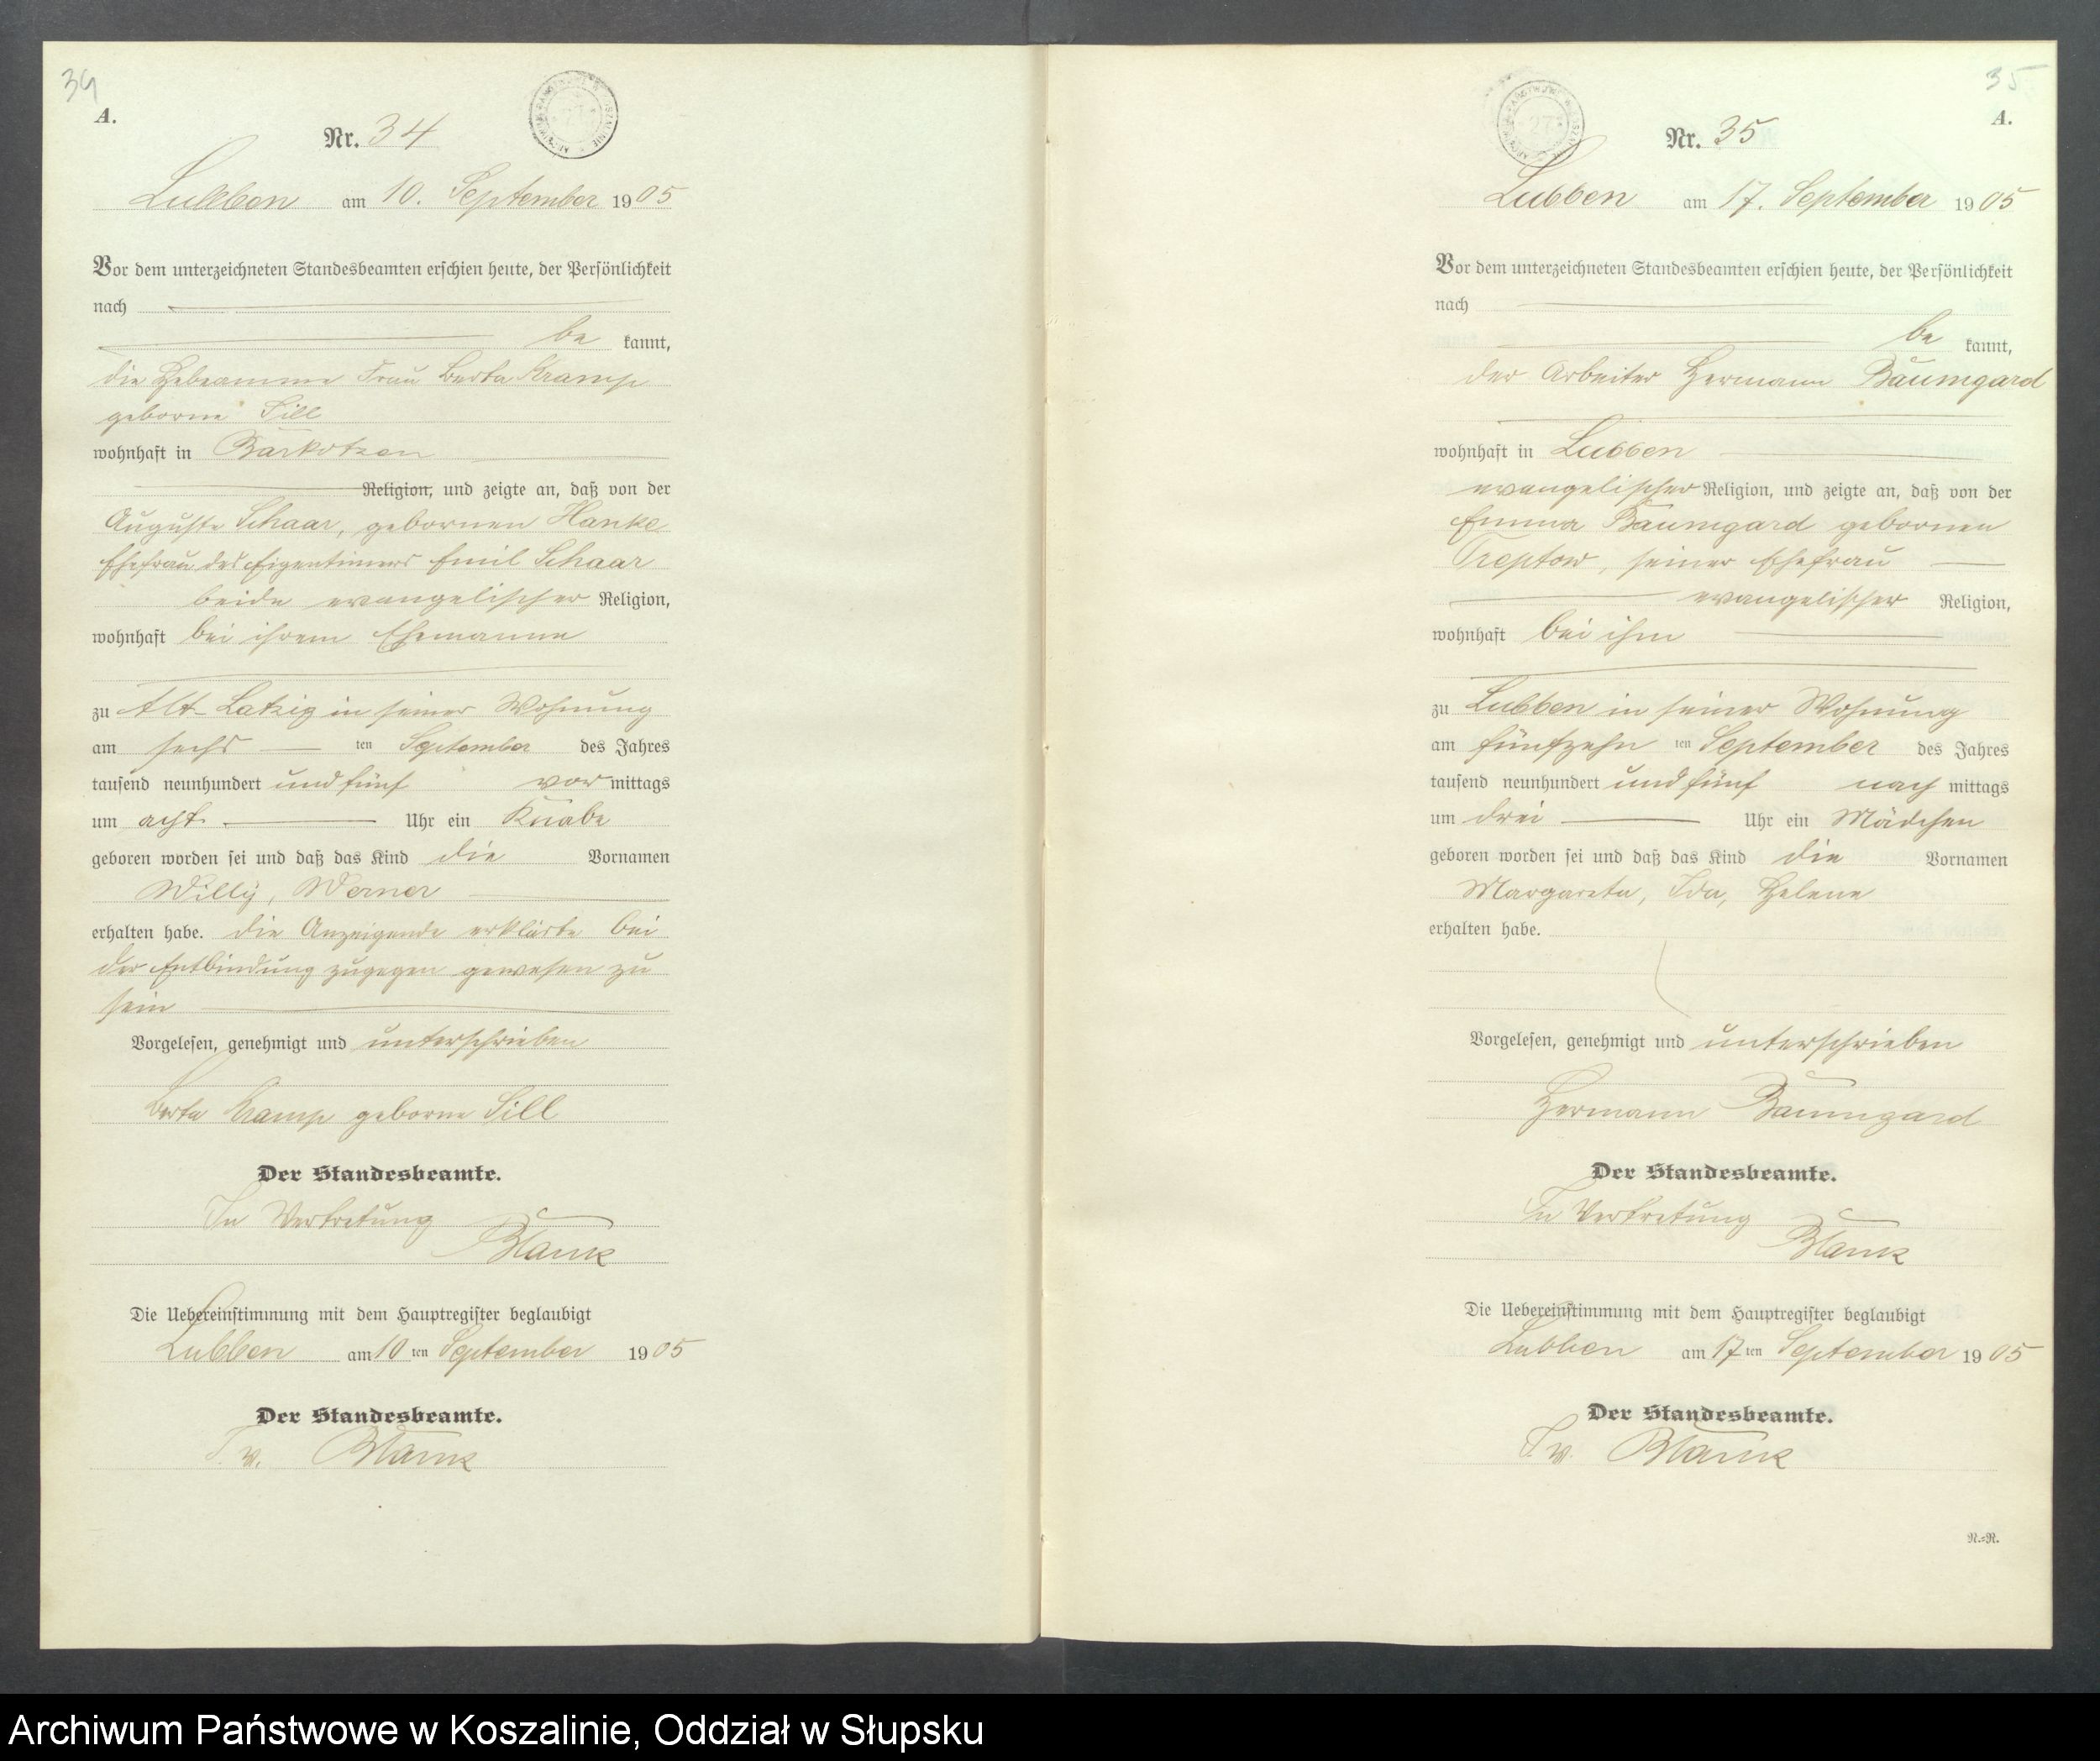 34
A.
Nr. 34
Lubben am 10. September 1905
Vor dem unterzeichneten Standesbeamten erschien heute, der Persönlichkeit
nach
be kannt,
die Hebeamme Frau Berta Kramp
geborne Sill
wohnhaft in Barkotzen
Religion, und zeigte an, daß von der
Auguste Schaar, gebornen Hanke
Ehefrau des Eigentümers Emil Schaar
beide evangelischer Religion,
wohnhaft bei ihrem Ehemanne
zu Alt-Latzig in seiner Wohnung
am sechs ten September des Jahres
tausend neunhundert und fünf vor mittags
um acht Uhr ein Knabe
geboren worden sei und daß das Kind die Vornamen
Willy, Werner
erhalten habe. die Anzeigende erklärte bei
der Entbindung zugegen gewesen zu
sein
Vorgelesen, genehmigt und unterschrieben
Berta Kramp geborne Sill
Der Standesbeamte.
In Vertretung
Blank
Die Uebereinstimmung mit dem Hauptregister beglaubigt
Lubben am 10 ten September 1905
Der Standesbeamte.
I. V. Blank
35
A.
27
Nr. 35
Lubben am 17. September 1905
Vor dem unterzeichneten Standesbeamten erschien heute, der Persönlichkeit
nach
be kannt,
der Arbeiter Hermann Baumgard
wohnhaft in Lubben
evangelischer Religion, und zeigte an, daß von der
Emma Baumgard gebornen
Treptow, seiner Ehefrau
evangelischer Religion,
wohnhaft bei ihm
zu Lubben in seiner Wohnung
am fünfzehn ten September des Jahres
tausend neunhundert und fünf nach mittags
um drei Uhr ein Mädchen
geboren worden sei und daß das Kind die Vornamen
Margareta, Ida, Helene
erhalten habe.
Vorgelesen, genehmigt und unterschrieben
Hermann Baumgard
Der Standesbeamte.
In Vertretung
Blank
Die Uebereinstimmung mit dem Hauptregister beglaubigt
Lubben am 17 ten September 1905
Der Standesbeamte.
I. V. Blank
N.=R.
Archiwum Państwowe w Koszalinie, Oddział w Słupsku